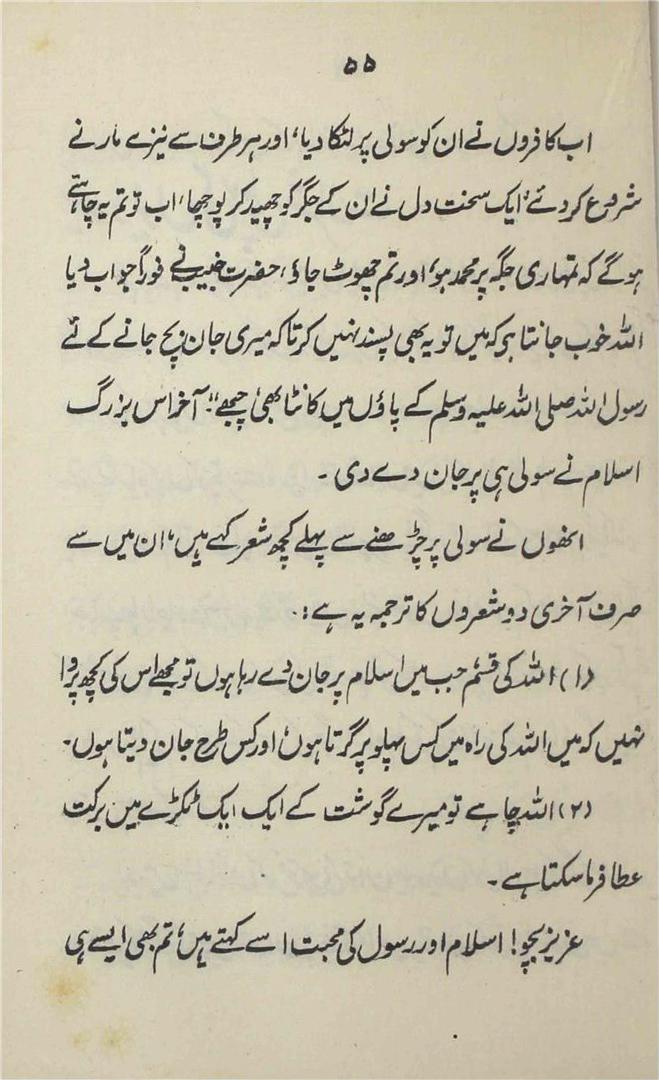 ۵۵
اب کافروں نے ان کو سولی پر لٹکا دیا، اور ہر طرف سے نیزے مارنے
شروع کر دئے، ایک سخت دل نے ان کے جگر کو چھید کر پوچھا، اب تو تم یہ چاہتے
ہو گے کہ تمہاری جگہ پر محمد ہو، اور تم چھوٹ جاؤ، حضرت خبیب نے فوراً جواب دیا
اللہ خوب جانتا ہی کہ میں تو یہ بھی پسند نہیں کرتا کہ میری جان بچ جانے کے لئے
رسول اللہ صلی اللہ علیہ وسلم کے پاؤں میں کانٹا بھی چبھے"۔ آخر اس بزرگ
اسلام نے سولی ہی پر جان دے دی ۔
انھوں نے سولی پر چڑھنے سے پہلے کچھ شعر کہے ہیں، ان میں سے
صرف آخری دو شعروں کا ترجمہ یہ ہے :۔
(۱) اللہ کی قسم جب میں اسلام پر جان دے رہا ہوں تو مجھے اس کی کچھ پروا
نہیں کہ میں اللہ کی راہ میں کس پہلو پر گرتا ہوں، اور کس طرح جان دیتا ہوں۔
(۲) اللہ چاہے تو میرے گوشت کے ایک ایک ٹکڑے میں برکت
عطا فرما سکتا ہے ۔
عزیز بچو! اسلام اور رسول کی محبت اسے کہتے ہیں، تم بھی ایسے ہی